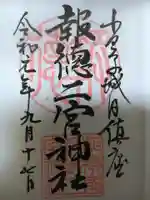 小田原城内鎮座
報徳二宮神社
令和元年九月十七日